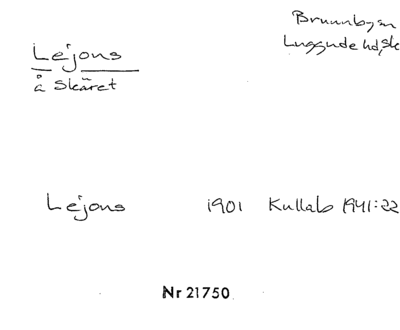 Brunnbysn
Luggude hd, Sk
Lejons
å Skäret
Lejons 1901 Kullab 1941:22
Nr 21750